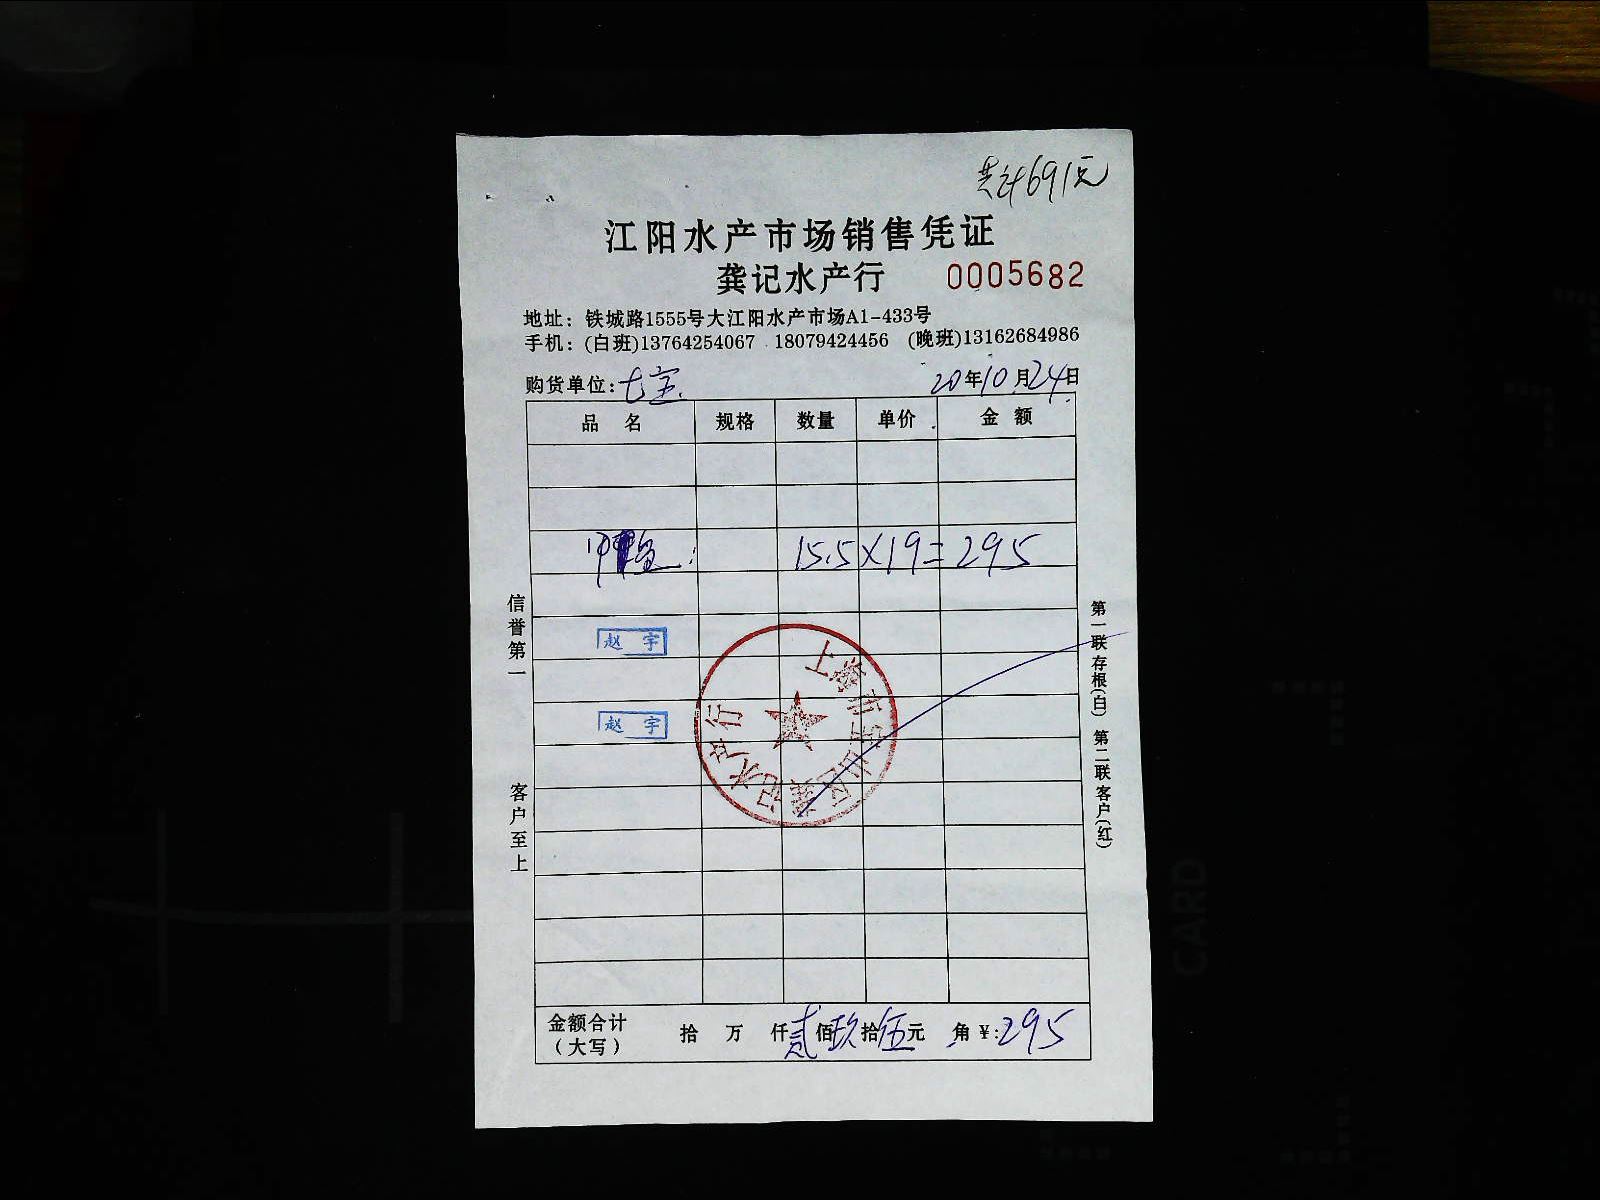 共计691元
江阳水产市场销售凭证
龚记水产行 0005682
地址：铁城路1555号大江阳水产市场A1-433号
手机：(白班)13764254067 18079424456 (晚班)13162684986
购货单位：七宝 20年10月24日
品名 规格 数量 单价 金额
15.5×19=295
赵宇
赵宇
上海市宝山区龚记水产行
信誉第一
客户至上
第一联存根(白) 第二联客户(红)
金额合计（大写） 拾 万 仟贰佰玖拾伍元 角 ¥:295
CARD